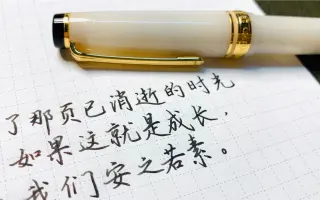 了那页已消逝的时光
如果这就是成长，
我们安之若素。